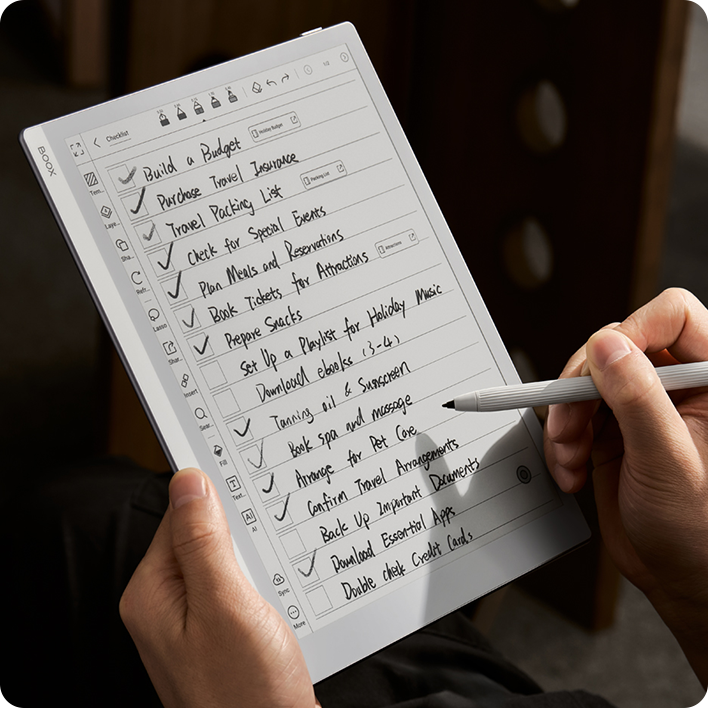 BOOX
Checklist
Build a Budget
Holiday Budget
Purchase Travel Insurance
Travel Packing List
Packing List
Check for Special Events
Plan Meals and Reservations
Book Tickets for Attractions
Attractions
Prepare Snacks
Set Up a Playlist for Holiday Music
Download ebooks (3-4)
Tanning oil & Sunscreen
Book spa and massage
Arrange for Pet Care
Confirm Travel Arrangements
Back Up Important Documents
Download Essential Apps
Double check Credit Cards
Tem...
Laye...
Sha...
Refr...
Lasso
Shar...
Insert
Sear...
Fill
Text...
AI
AI
Sync
More